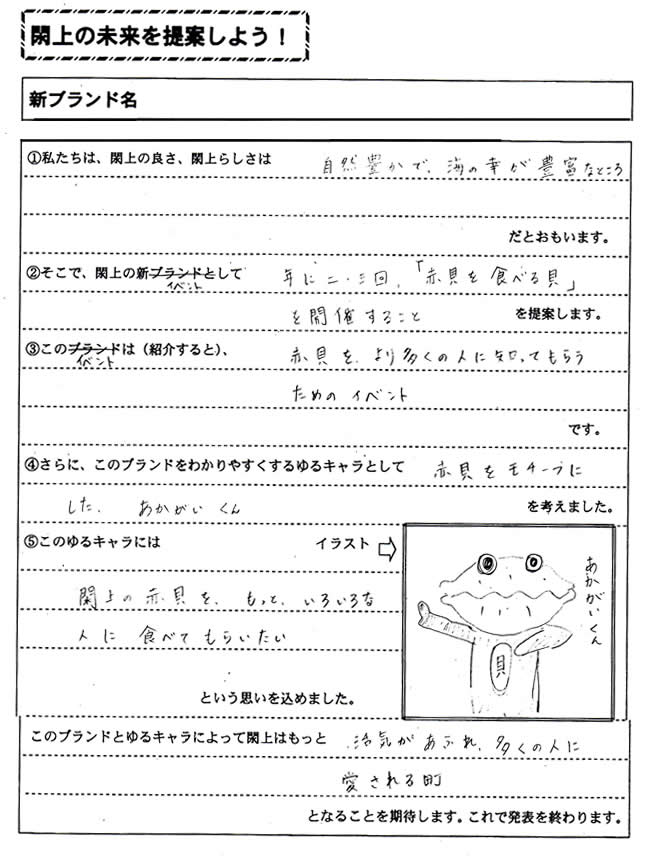 閖上の未来を提案しよう！
新ブランド名
①私たちは、閖上の良さ、閖上らしさは 自然豊かで、海の幸が豊富なところ
だとおもいます。
②そこで、閖上の新ブランドとして 年に二・三回、「赤貝を食べる貝」
イベント
を開催すること を提案します。
③このブランドは（紹介すると）、 赤貝を、より多くの人に知ってもらう
イベント
ための イベント
です。
④さらに、このブランドをわかりやすくするゆるキャラとして 赤貝をモチーフに
した、 あかがいくん を考えました。
⑤このゆるキャラには イラスト
閖上の赤貝を、もっと、いろいろな
人に 食べてもらいたい
という思いを込めました。
あかがいくん
貝
このブランドとゆるキャラによって閖上はもっと 活気があふれ、多くの人に
愛される町
となることを期待します。これで発表を終わります。